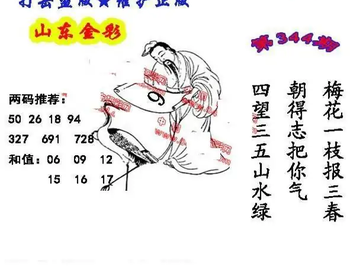 打击盗版贡维护正版
山东金彩
第344期
两码推荐:
50 26 18 94
327 691 728
和值: 06 09 12
15 16 17
9
梅花一枝报三春
朝得志把你气
四望三五山水绿